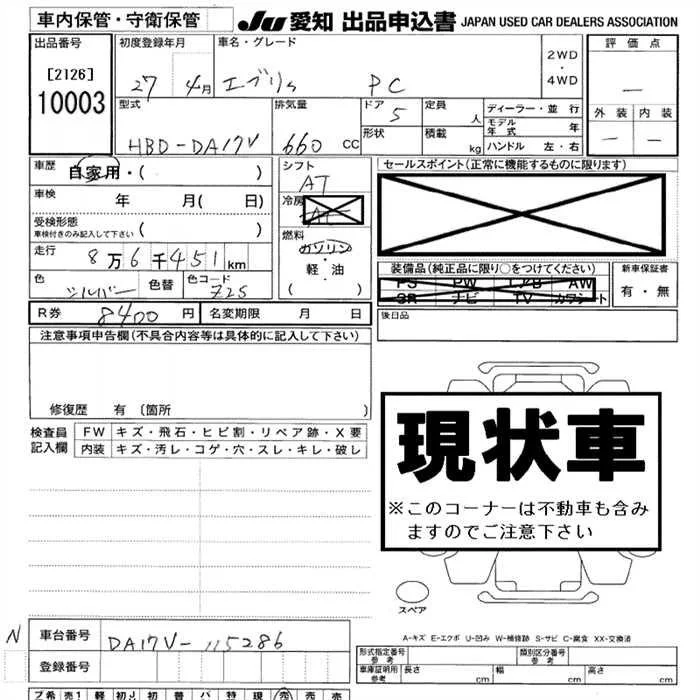 車内保管・守衛保管
JU 愛知 出品申込書 JAPAN USED CAR DEALERS ASSOCIATION
出品番号
[2126]
10003
初度登録年月
27 4月
車名・グレード
エブリィ PC
2WD
・
4WD
評価点
―
外装 内装
― ―
型式
HBD-DA17V
排気量
660 CC
ドア
5
形状
定員
人
積載
kg
ディーラー・並行
モデル年式 年
ハンドル 左・右
車歴
自家用・( )
車検
年 月( 日)
受検形態
車検付きのみ記入して下さい ( )
走行
8万6千451km
色
シルバー
色替
色コード
Z2S
シフト
AT
冷房
AC
燃料
ガソリン
・
軽・油
( )
セールスポイント(正常に機能するものに限ります)
装備品(純正品に限り○をつけてください)
PS PW エアB AW
SR ナビ TV カワシート
新車保証書
有・無
後日品
R券
8400円
名変期限 月 日
注意事項申告欄(不具合内容等は具体的に記入して下さい)
修復歴 有 〔箇所 〕
検査員
記入欄
FW キズ・飛石・ヒビ割・リペア跡・X要
内装 キズ・汚レ・コゲ・穴・スレ・キレ・破レ
現状車
※このコーナーは不動車も含み
ますのでご注意下さい
スペア
A-キズ E-エクボ U-凹み W-補修跡 S-サビ C-腐食 XX-交換済
N
車台番号
DA17V-115286
登録番号
形式指定番号
参考
類別区分番号
参考
車庫証明用
参考
長さ cm
幅 cm
高さ cm